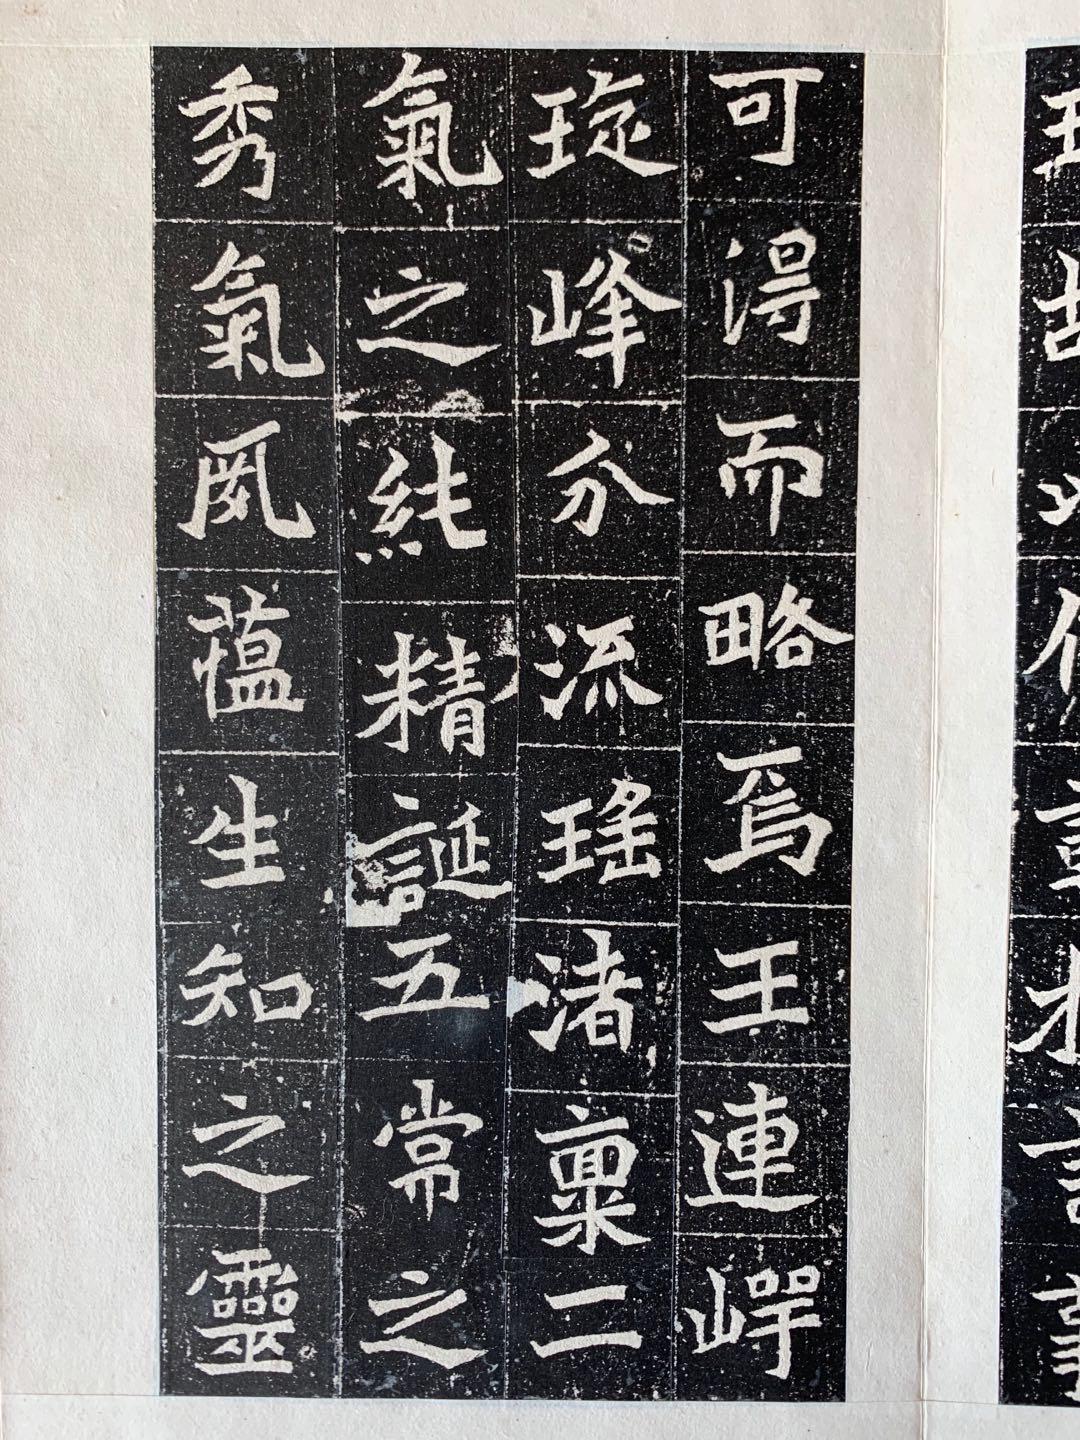 可淂而略焉王連崿
琁峰分流瑤渚稟二
氣之純精誕五常之
秀氣夙藴生知之靈